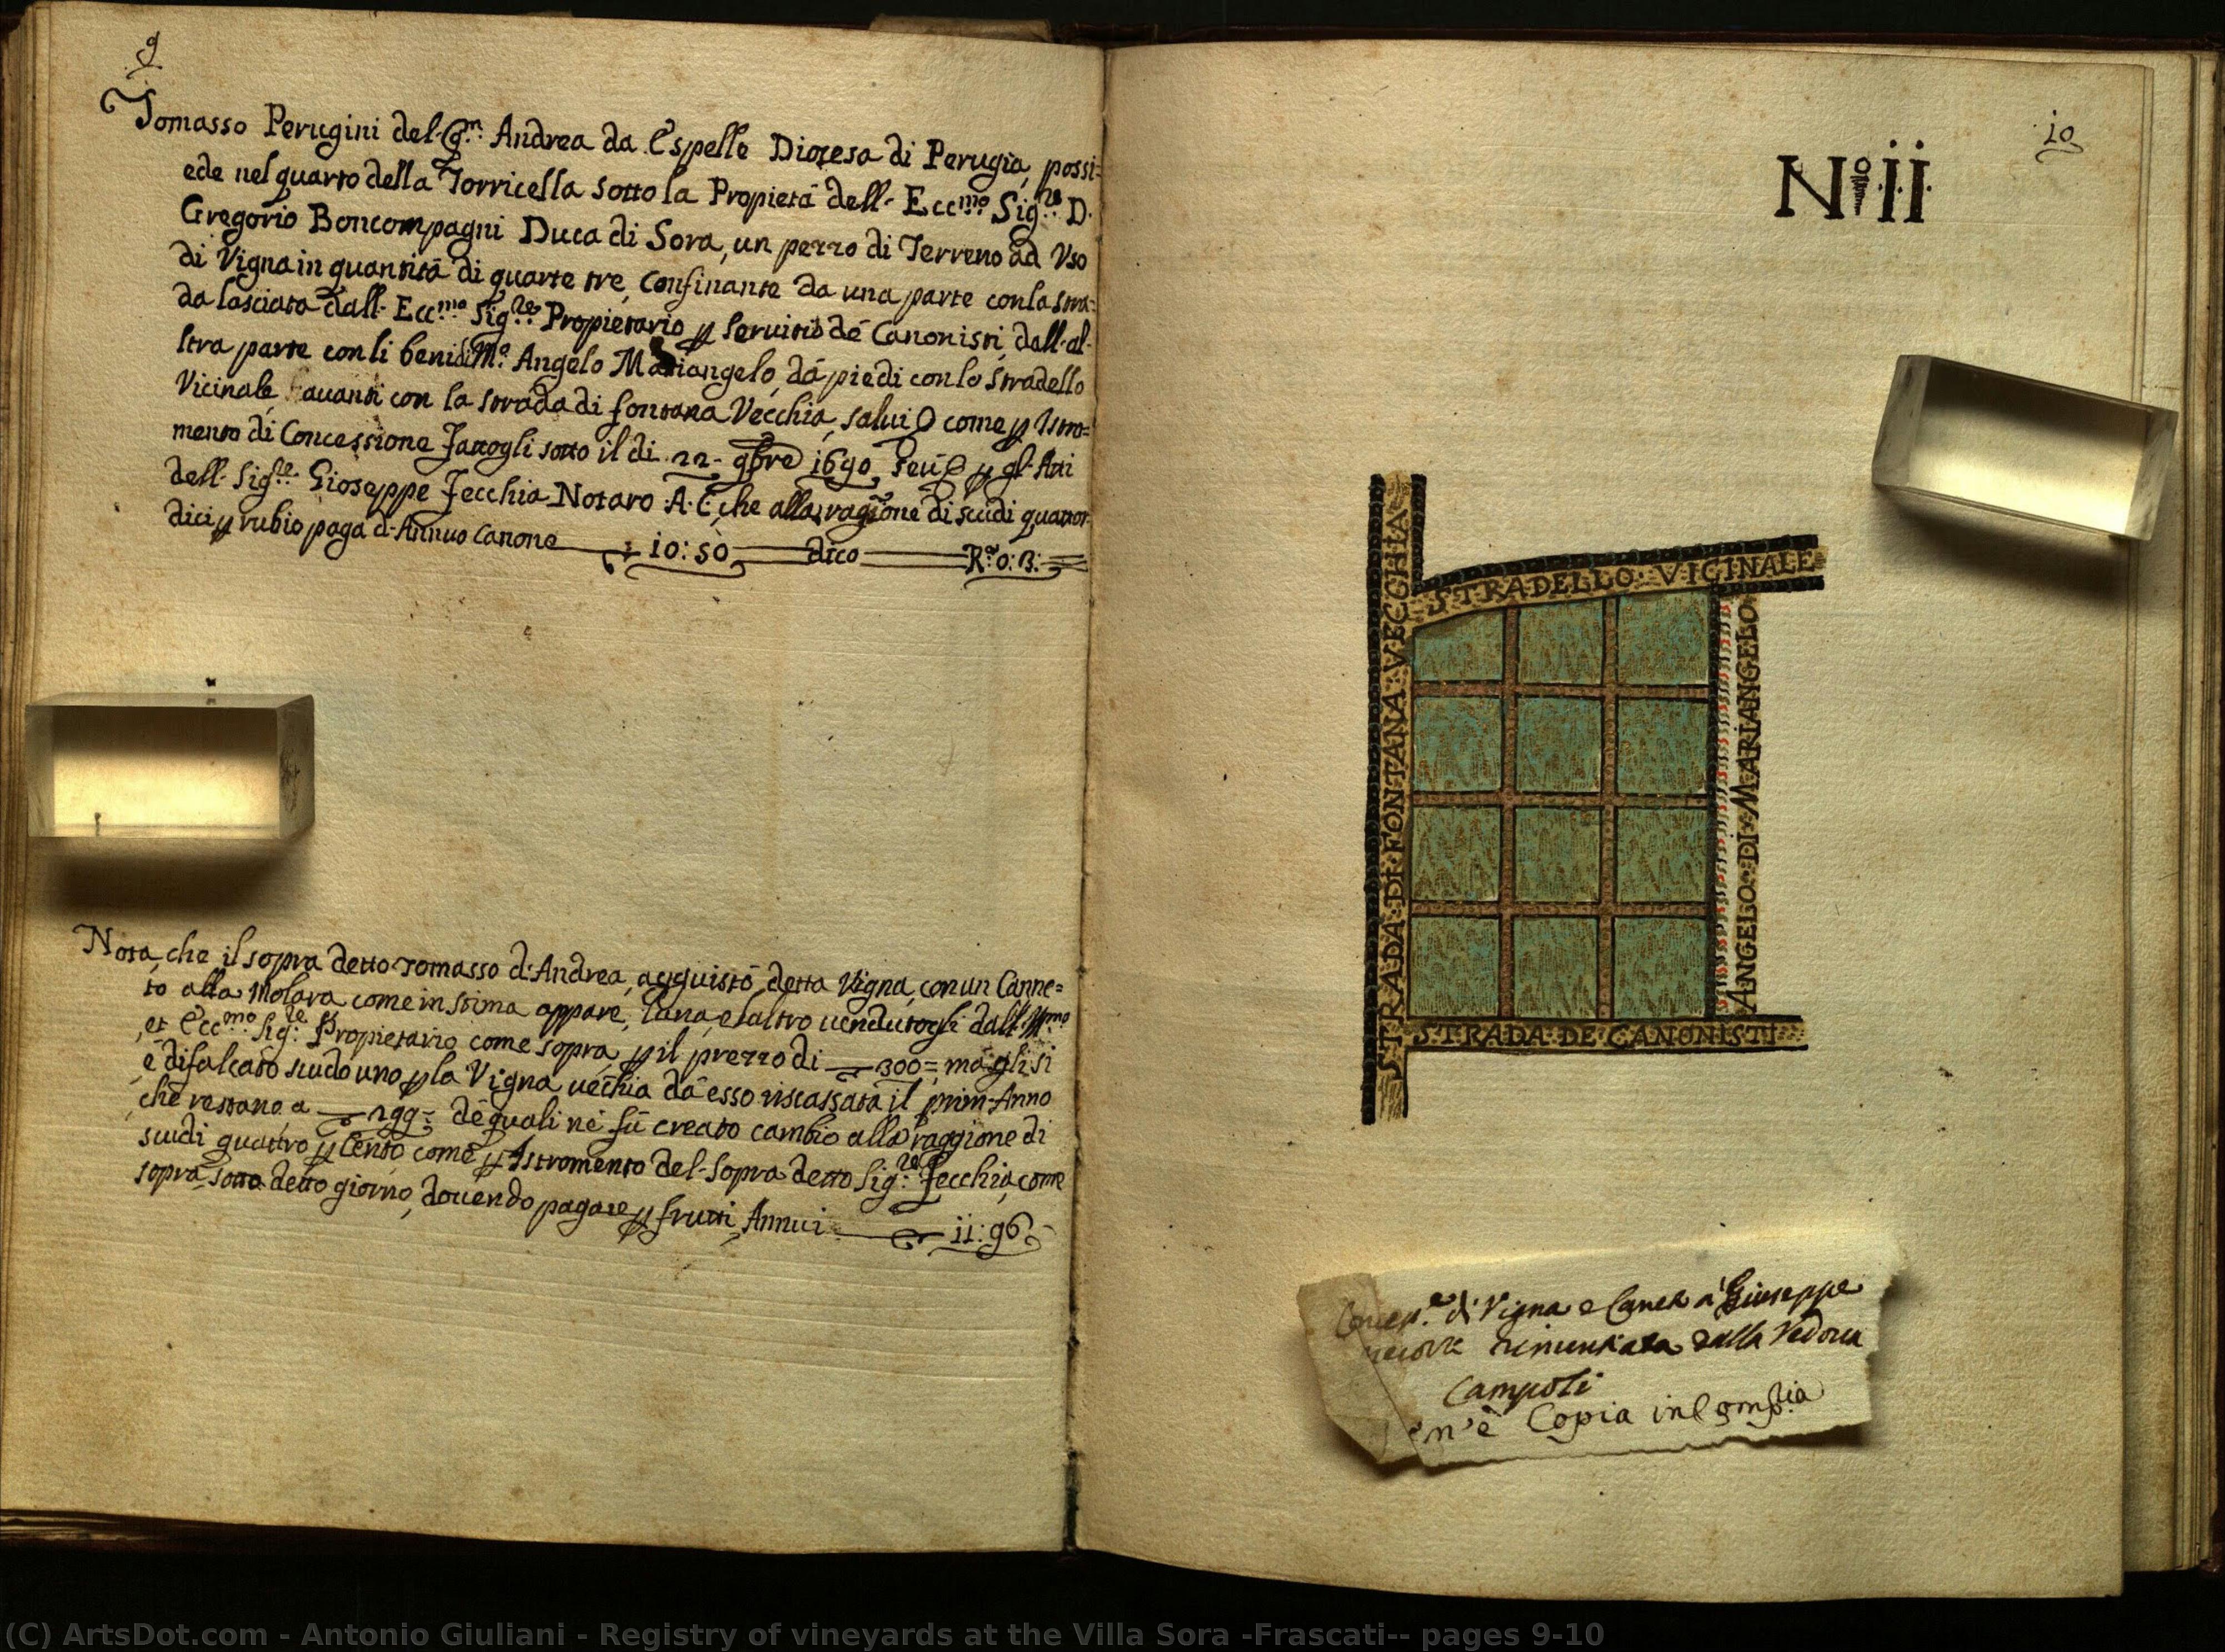 9
Tomasso Perugini del qm: Andrea da Espelle Diocesa di Perugia, possi=
ede nel quarto della Torricella sotto la Propietà dell- Eccmo: Sigre: D.
Gregorio Boncompagni Duca di Sora, un pezzo di Terreno ad Vso
di Vigna in quantità di quarte tre, Confinante da una parte con la stra=
da lasciata dall- Eccmo: Sigre: Propietario p seruitio dé Canonisti, dall-al-
ltra parte con li beni di Mo: Angelo Mariangelo, dá piedi con lo stradello
Vicinale, auanti con la strada di fontana Vecchia, salui come p Istro=
mento di Concessione fattogli sotto il di 22- 9bre 1690, p gl- Atti
dell- Sigre: Gioseppe Fecchia Notaro A. C, che alla ragione di scudi quattor-
dici p rubio paga d'Annuo Canone 10:50 dico Ro: 0:3:
Nota, che il sopra detto Tomasso d'Andrea, acquistó detta Vigna, con un Canne=
to alla Molara come in stima appare, l'una, e l'altro uendutogli dall- Illmo
et Eccmo: Sig:re Propietario come sopra, p il prezzo di 300= mà gli si
é difalcato scudo uno p la Vigna uecchia dá esso riscassata il prim-Anno
che restano a 299= dé quali né fú creato cambio alla raggione di
scudi quattro p Cento come p Istromento del- sopra detto Sig:re Fecchia, come
sopra, sotto detto giorno, douendo pagare p frutti Annui 11:96
10
N.º II
STRADA DI FONTANA VECCHIA
STRADELLO VICINALE
ANGELO DI MARIANGELO
STRADA DE CANONISTI
di Vigna e Canne a Giuseppe
rinunziata dalla Vedova
Campoli
n'è Copia in
(C) ArtsDot.com - Antonio Giuliani - Registry of vineyards at the Villa Sora -Frascati-- pages 9-10